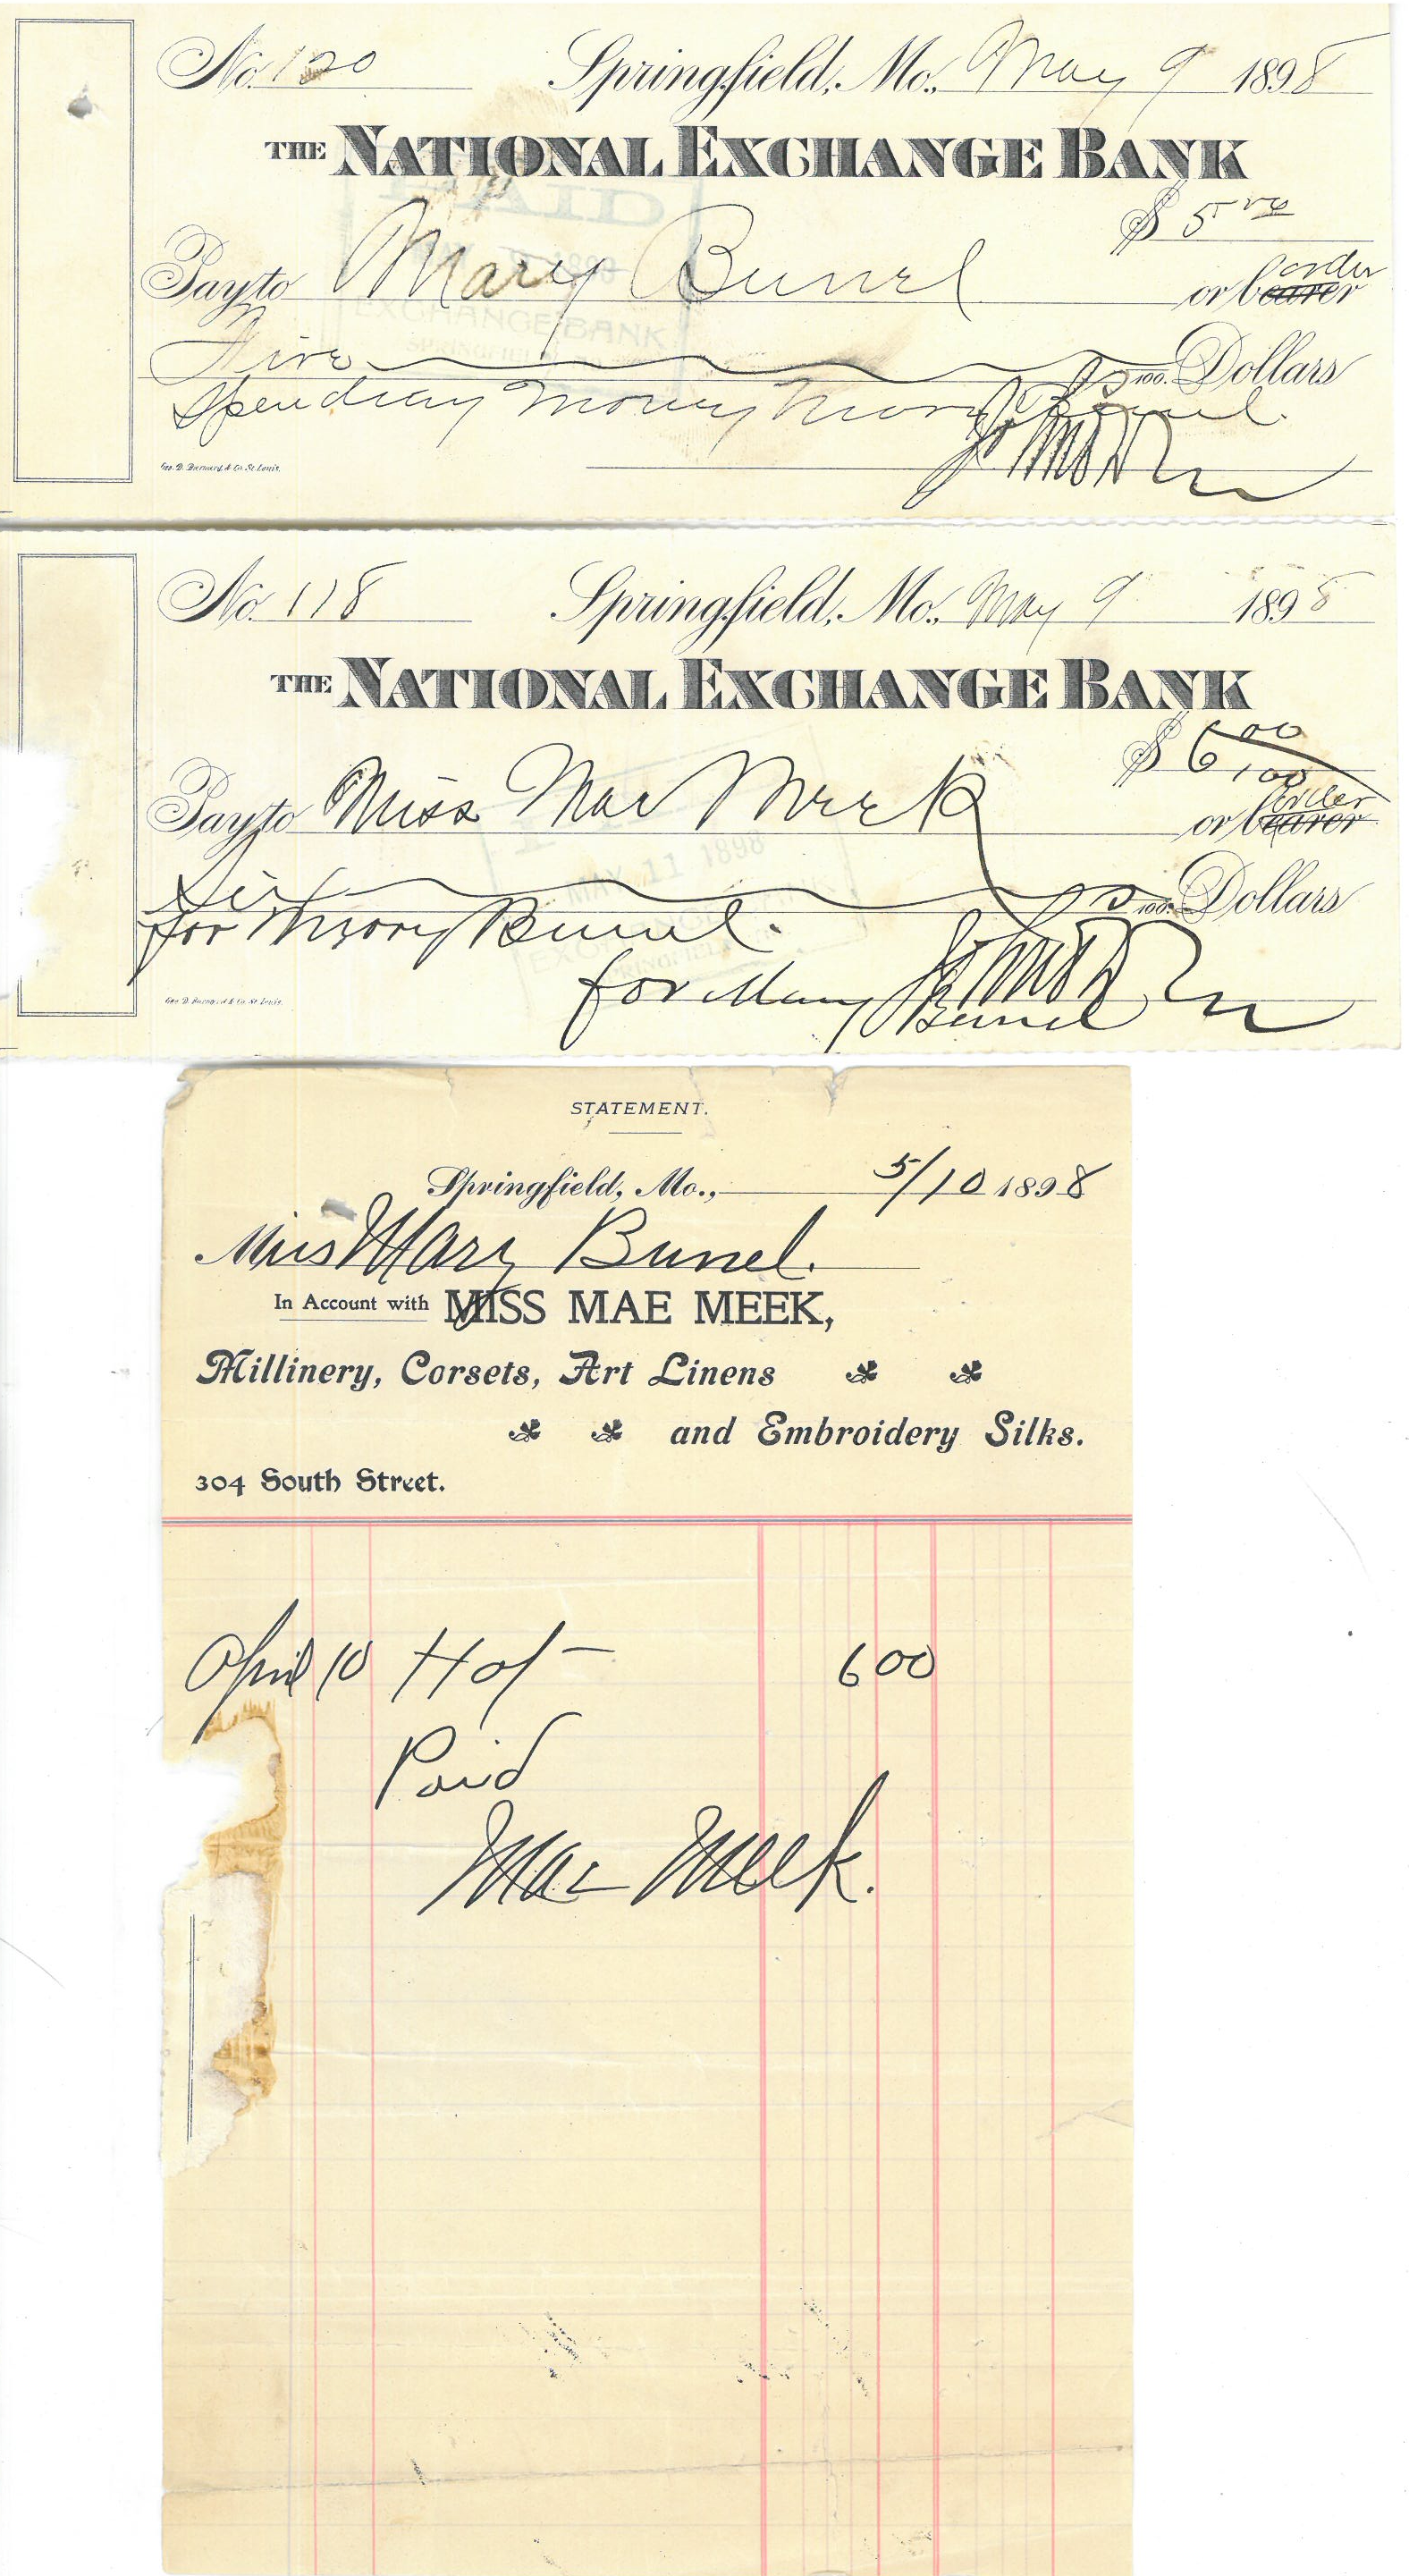 No. 120 Springfield, Mo., May 9 1898
THE NATIONAL EXCHANGE BANK
$ 5
Pay to Mary Bunel or bearer order
PAID
EXCHANGE BANK
Five 100. Dollars
Spending money Mary Bunel.
Geo. D. Barnard & Co. St. Louis.
No. 118 Springfield, Mo., May 9 1898
THE NATIONAL EXCHANGE BANK
$ 6 00/100
Pay to Miss Mae Meek or bearer order
MAY 11 1898
Six 100. Dollars
for Mary Bunel.
EXCHANGE
for Mary Bunel
Geo. D. Barnard & Co. St. Louis.
STATEMENT.
Springfield, Mo., 5/10 1898
Miss Mary Bunel.
In Account with MISS MAE MEEK,
Millinery, Corsets, Art Linens
and Embroidery Silks.
304 South Street.
April 10 Hat 6 00
Paid
Mae Meek.